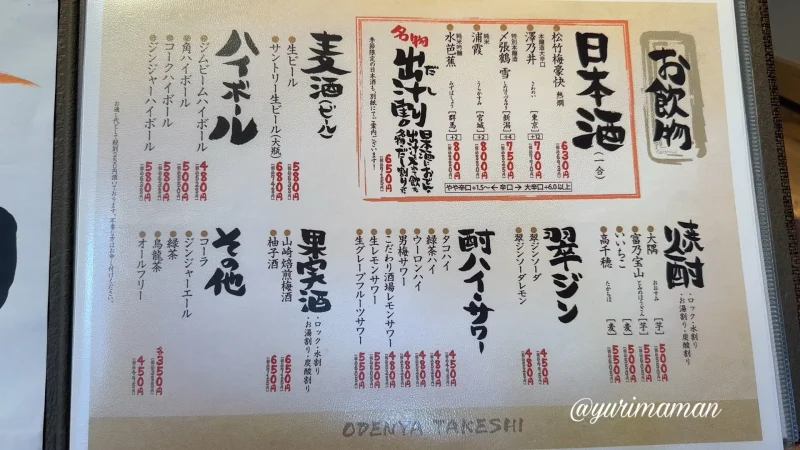 お飲物
日本酒(一合)
松竹梅豪快 熱燗 630円
本醸造大辛口
澤乃井 さわのい [東京] +12 700円
特別本醸造
〆張鶴 雪 [新潟] +4 750円
純米
浦霞 うらかすみ [宮城] +2 800円
純米吟醸
水芭蕉 みずばしょう [群馬] +2 800円
やや辛口+1.5〜 ← 辛口 → 大辛口+6.0以上
名物
出汁割
650円
季節限定の日本酒も、別紙にてご案内ございます!
麦酒(ビール)
生ビール 580円
サントリー生ビール(大瓶) 680円
ハイボール
ジムビームハイボール 480円
角ハイボール 500円
コークハイボール 580円
ジンジャーハイボール 580円
焼酎
・ロック・水割り
・お湯割り・炭酸割り
大隅 おおすみ [芋] 500円
富乃宝山 とみのほうざん [芋] 550円
いいちこ [麦] 500円
高千穂 たかちほ [麦] 500円
翠ジン
翠ジンソーダ 450円
翠ジンソーダレモン 480円
酎ハイ・サワー
タコハイ 450円
緑茶ハイ 480円
ウーロンハイ
男梅サワー
こだわり酒場レモンサワー
生レモンサワー 550円
生グレープフルーツサワー 550円
果実酒
・ロック・水割り
・お湯割り・炭酸割り
山崎焙煎梅酒 650円
柚子酒 650円
その他
コーラ
ジンジャーエール
緑茶
烏龍茶
各350円
オールフリー 450円
ODENYA TAKESHI
@yurimaman